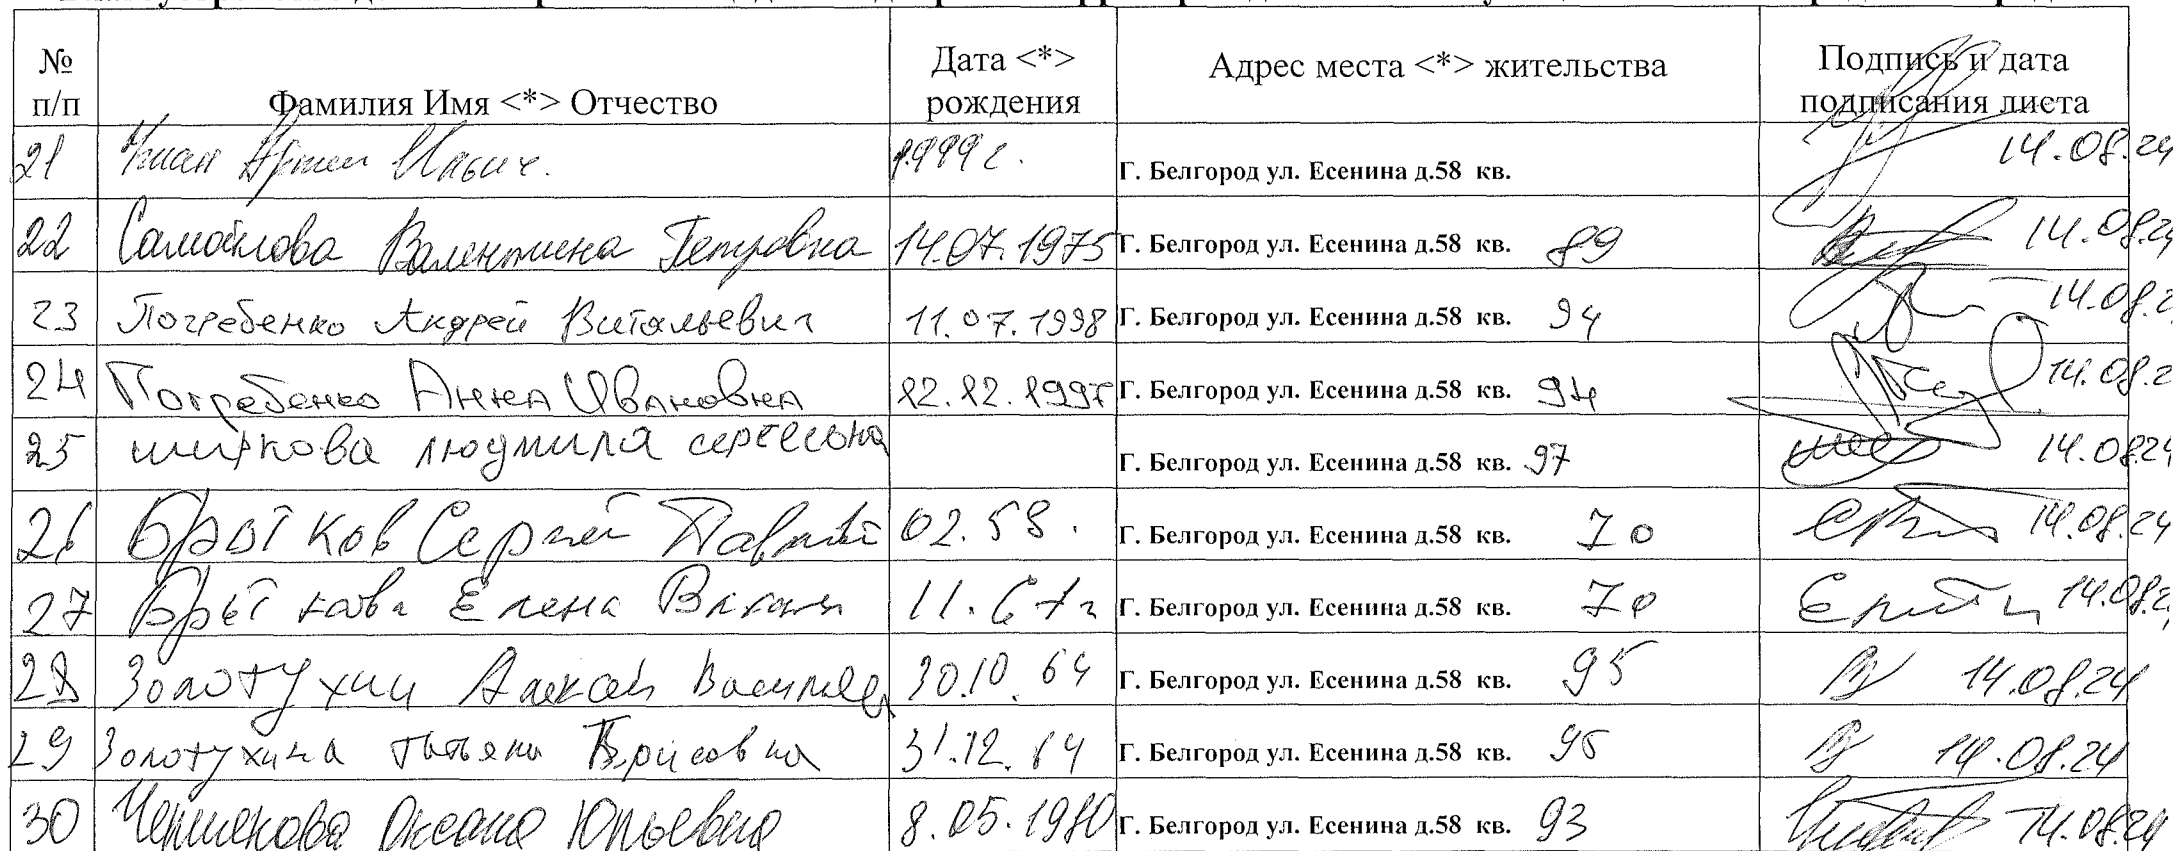 № п/п Фамилия Имя <*> Отчество Дата <*> рождения Адрес места <*> жительства Подпись и дата подписания листа
21 Ильич. 1999 г. Г. Белгород ул. Есенина д.58 кв. 14.08.24
22 Самойлова Валентина Петровна 14.07.1975 Г. Белгород ул. Есенина д.58 кв. 89 14.08.24
23 Погребенко Андрей Витальевич 11.07.1998 Г. Белгород ул. Есенина д.58 кв. 94 14.08.2
24 Погребенко Анна Ивановна 12.12.1997 Г. Белгород ул. Есенина д.58 кв. 94 14.08.2
25 ширкова людмила Г. Белгород ул. Есенина д.58 кв. 97 14.08.24
26 Сергей 02.58. Г. Белгород ул. Есенина д.58 кв. 70 14.08.24
27 Елена 11.67г Г. Белгород ул. Есенина д.58 кв. 70 14.08.2
28 Золотухин Алексей 30.10.64 Г. Белгород ул. Есенина д.58 кв. 95 14.08.24
29 Золотухина татьяна Борисовна 31.12.64 Г. Белгород ул. Есенина д.58 кв. 95 14.08.24
30 Оксана Юрьевна 8.05.1980 Г. Белгород ул. Есенина д.58 кв. 93 14.08.24